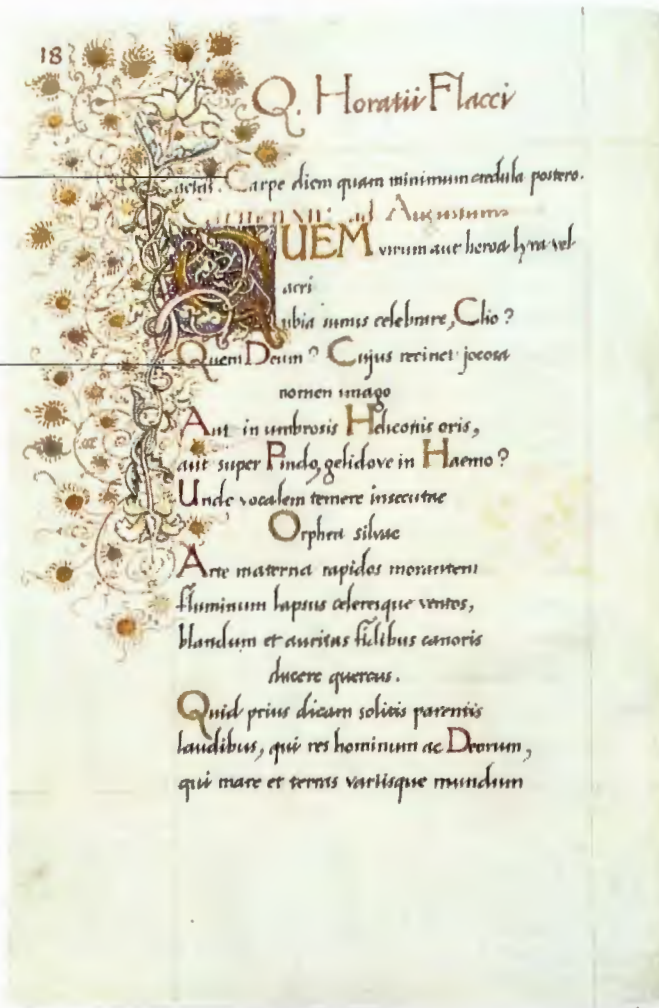 18
Q. Horatii Flacci
aetas. Carpe diem quam minimum credula postero.
Carmen XII. ad Augustum
QUEM virum aut heroa lyra vel
acri
tibia sumis celebrare, Clio?
Quem Deum? Cujus recinet jocosa
nomen imago
Aut in umbrosis Heliconis oris,
aut super Pindo, gelidove in Haemo?
Unde vocalem temere insecutae
Orphea silvae
Arte materna rapidos morantem
fluminum lapsus celeresque ventos,
blandum et auritas fidibus canoris
ducere quercus.
Quid prius dicam solitis parentis
laudibus, qui res hominum ac Deorum,
qui mare et terras variisque mundum